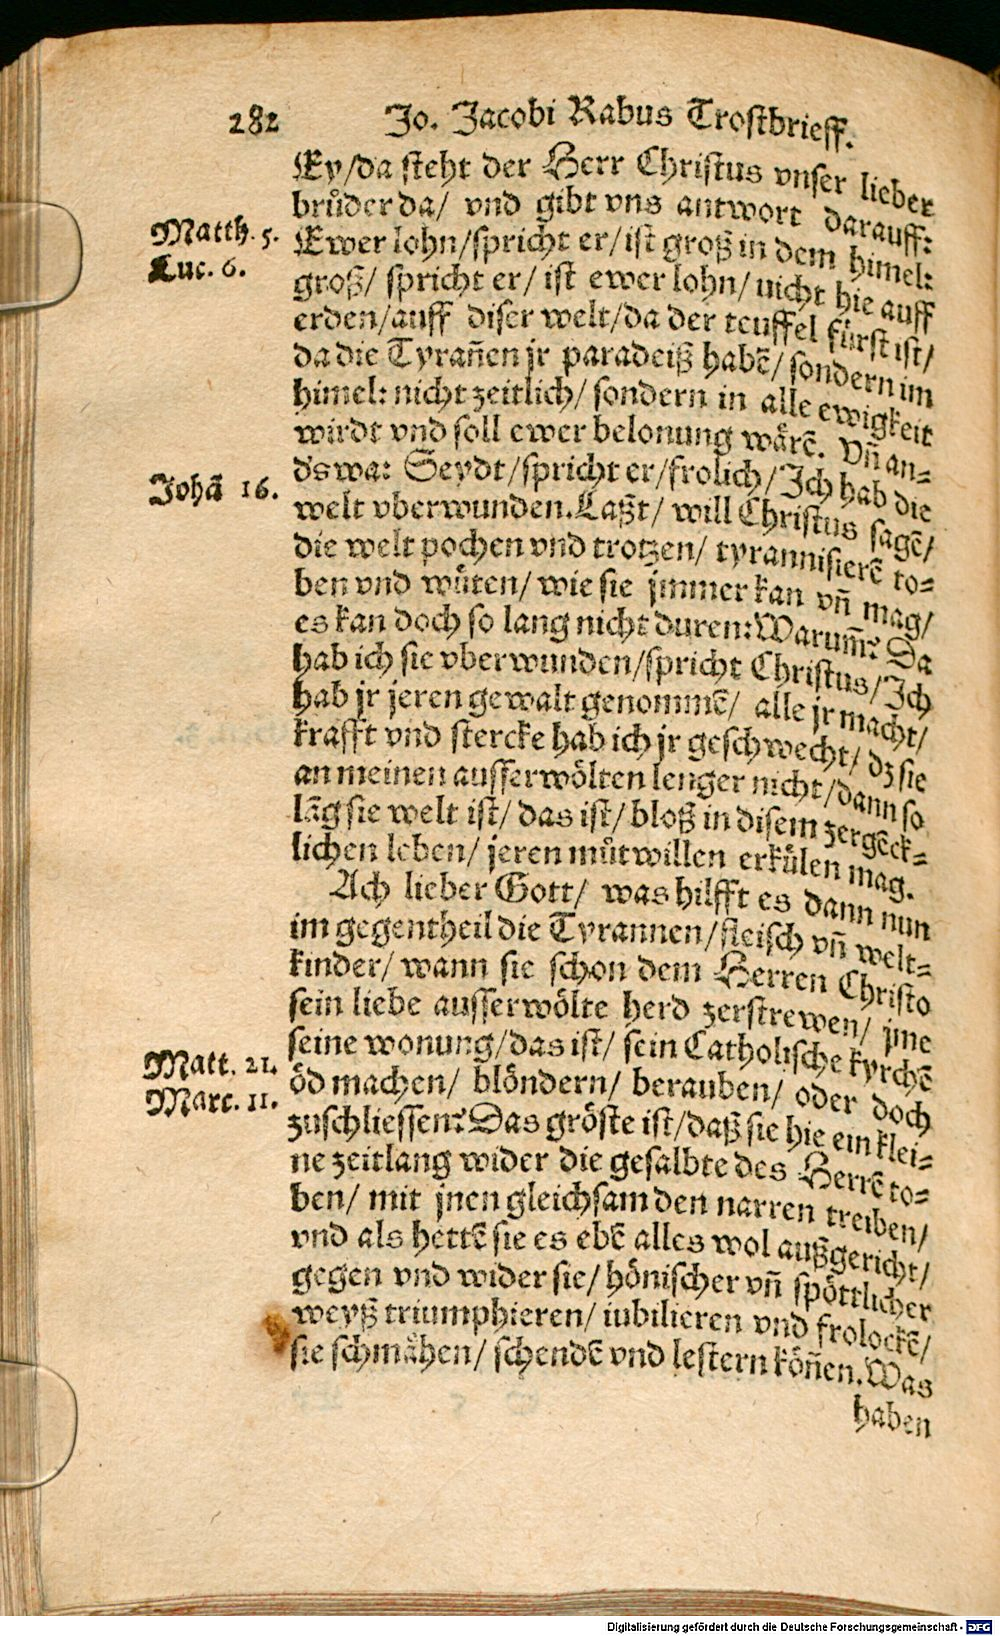 282 Jo. Jacobi Rabus Trostbrieff.
Ey/da steht der Herr Christus vnser lieber
brůder da/ vnd gibt vns antwort darauff:
Matth. 5.
Ewer lohn/spricht er/ist groß in dem himel:
Luc. 6.
groß/ spricht er/ ist ewer lohn/ nicht hie auff
erden/auff diser welt/da der teuffel fürst ist/
da die Tyrañen jr paradeiß habẽ/ sondern im
himel: nicht zeitlich/ sondern in alle ewigkeit
wirdt vnd soll ewer belonung wärẽ. Vñ an-
Johã 16.
d'swa: Seydt/spricht er/frolich/Ich hab die
welt vberwunden. Laßt/ will Christus sagẽ/
die welt pochen vnd trotzen/ tyrannisierẽ to-
ben vnd wüten/ wie sie jmmer kan vñ mag/
es kan doch so lang nicht duren: Warum̃? Da
hab ich sie vberwunden/spricht Christus/Ich
hab jr jeren gewalt genommẽ/ alle jr macht/
krafft vnd stercke hab ich jr geschwecht/ dz sie
an meinen ausserwölten lenger nicht/dann so
lãg sie welt ist/ das ist/ bloß in disem zergẽck-
lichen leben/ jeren můtwillen erkülen mag.
Ach lieber Gott/ was hilfft es dann nun
im gegentheil die Tyrannen/fleisch vñ welt-
kinder/ wann sie schon dem Herren Christo
sein liebe ausserwölte herd zerstrewen/ jme
Matt. 21.
seine wonung/das ist/ sein Catholische kyrchẽ
Marc. 11.
öd machen/ blöndern/ berauben/ oder doch
zuschliessen? Das gröste ist/daß sie hie ein klei-
ne zeitlang wider die gesalbte des Herrẽ to-
ben/ mit jnen gleichsam den narren treiben/
vnd als hettẽ sie es ebẽ alles wol außgericht/
gegen vnd wider sie/ hönischer vñ spöttlicher
weyß triumphieren/ iubilieren vnd frolockẽ/
sie schmähen/ schendẽ vnd lestern köñen. Was
haben
Digitalisierung gefördert durch die Deutsche Forschungsgemeinschaft - DFG